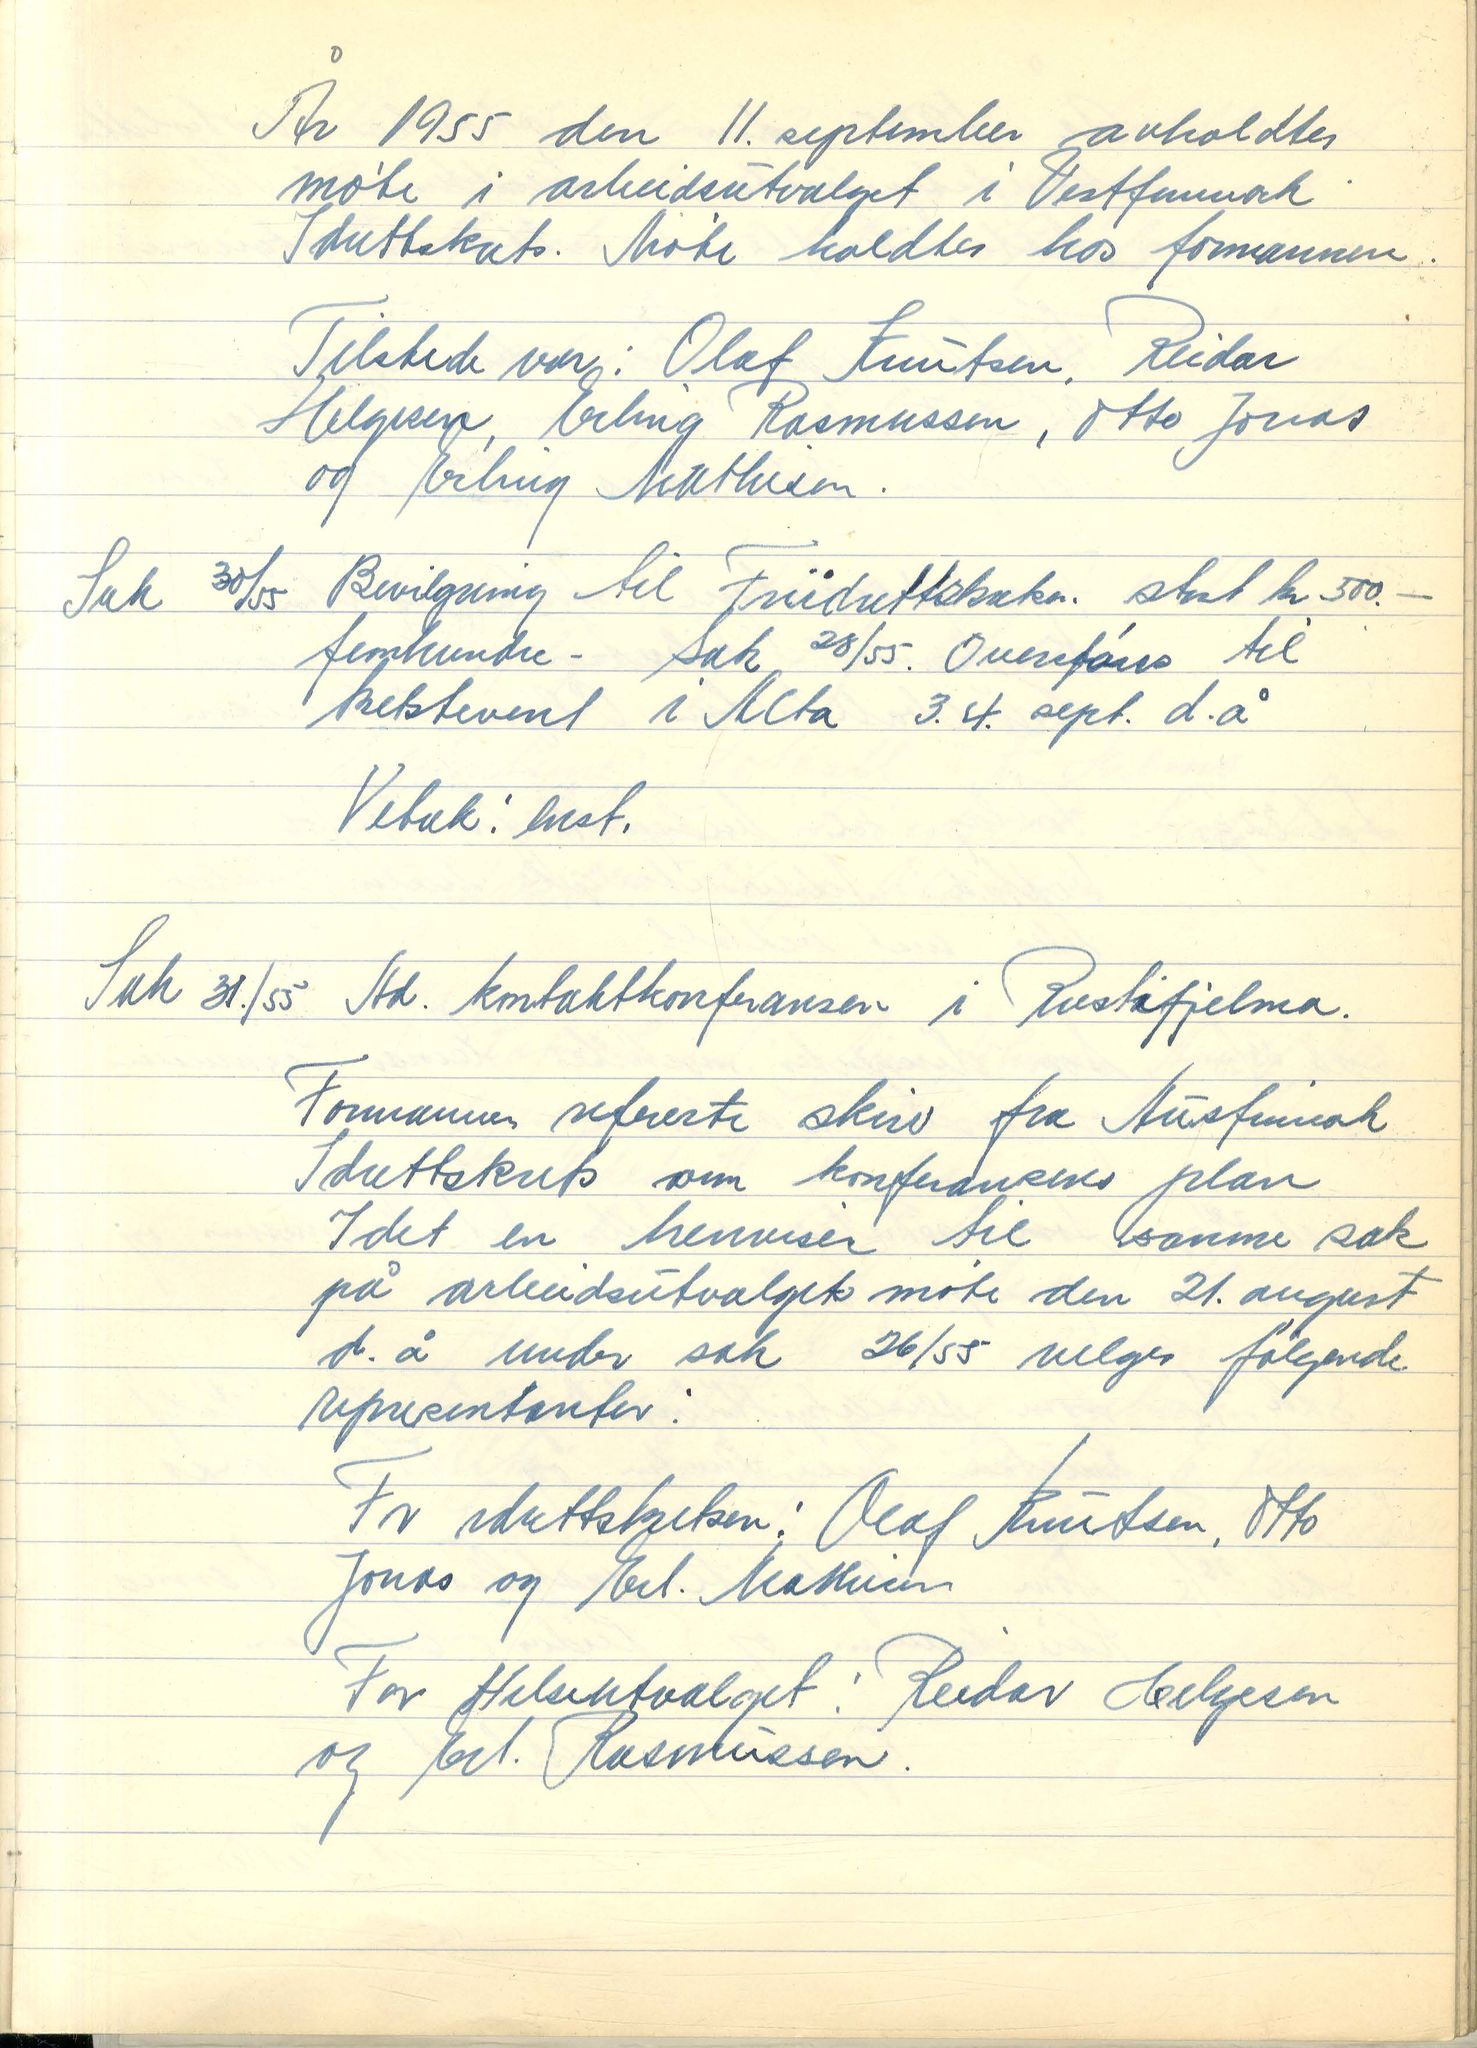 År 1955 den 11. september avholdtes
møte i arbeidsutvalget i Vestfinnmark
Idrettskrets. Møte holdtes hos formannen.
Tilstede var: Olaf Knutsen, Reidar
Helgesen, Erling Rasmussen, Otto Jonas
og Erling Mathisen.
Sak 30/55 Bevilgning til Friidrettskrke. stort kr 500.-
femhundre - Sak 28/55. Overføres til
kretsstevnet i Alta 3.4. sept. d.å
Vetak: enst.
Sak 31./55 Ad. kontaktkonferansen i Rustefjelma.
Formannen refererte skriv fra Austfinnmark
Idrettskrets om konferansens plan
Idet en henviser til samme sak
på arbeidsutvalgets møte den 21. august
d.å under sak 26/55 velges følgende
representanter:
For idrettskretsen: Olaf Knutsen, Otto
Jonas og Erl. Mathisen
For Helseutvalget: Reidar Helgesen
og Erl. Rasmussen.